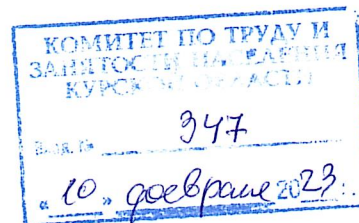 КОМИТЕТ ПО ТРУДУ И
ЗАНЯТОСТИ НАСЕЛЕНИЯ
КУРСКОЙ ОБЛАСТИ
Вход. № 347
« 10 » февраля 2023 г.